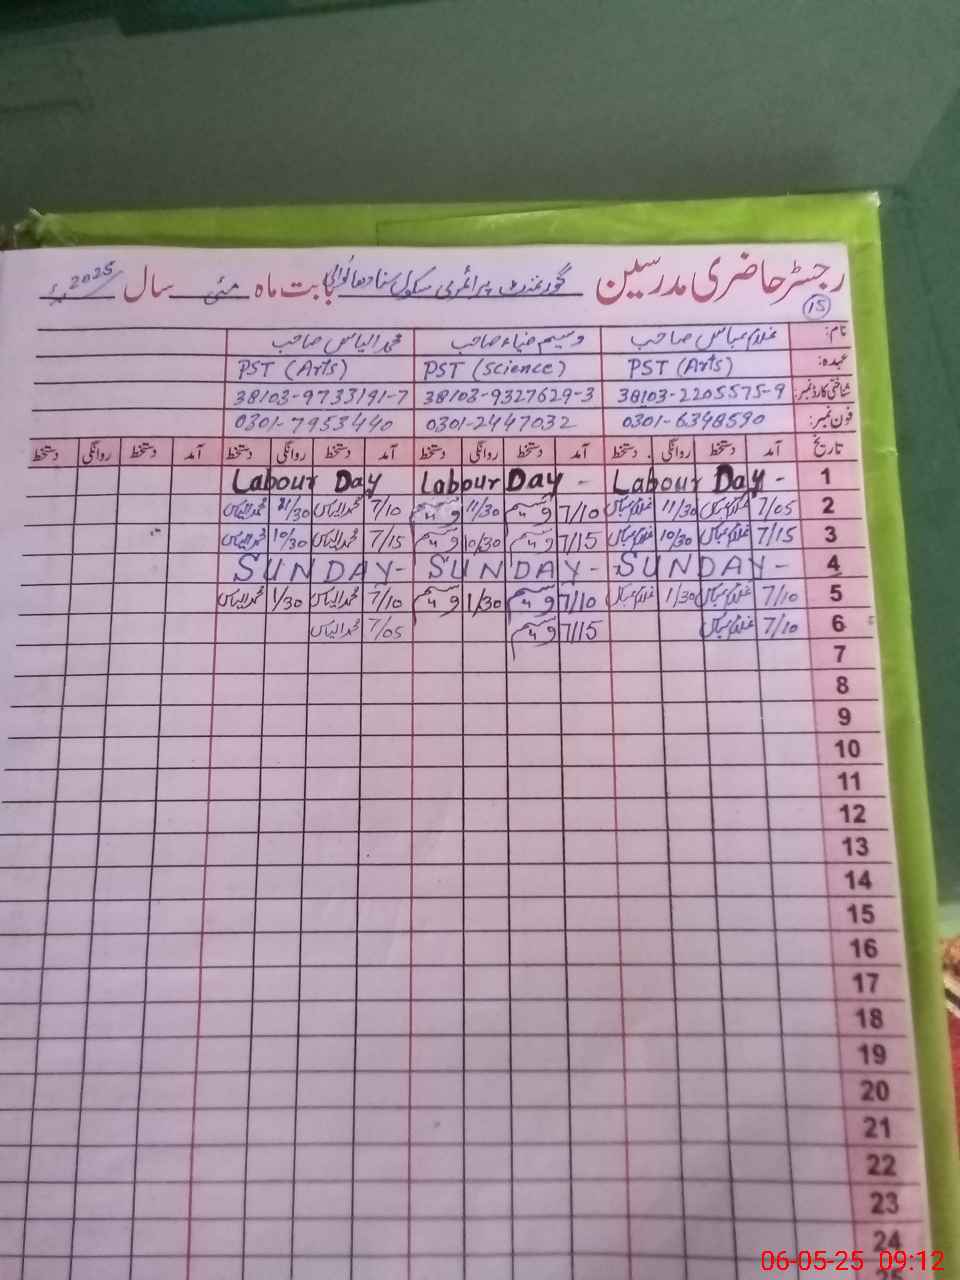 رجسٹر حاضری مدرسین گورنمنٹ پرائمری سکول بابت ماہ مئی سال 2025
15
نام: غلام عباس صاحب وسیم ضیاء صاحب محمد الیاس صاحب
عہدہ: PST (Arts) PST (Science) PST (Arts)
شناختی کارڈ نمبر: 38103-2205575-9 38103-9327629-3 38103-9733191-7
فون نمبر: 0301-6348590 0301-2447032 0301-7953440
تاریخ آمد دستخط روانگی دستخط آمد دستخط روانگی دستخط آمد دستخط روانگی دستخط آمد دستخط روانگی دستخط
1 Labour Day - Labour Day - Labour Day
2 7/05 غلام عباس 11/30 غلام عباس 7/10 11/30 7/10 محمد الیاس 11/30 محمد الیاس
3 7/15 غلام عباس 10/30 غلام عباس 7/15 10/30 7/15 محمد الیاس 10/30 محمد الیاس
4 SUNDAY - SUNDAY - SUNDAY -
5 7/10 غلام عباس 1/30 غلام عباس 7/10 1/30 7/10 محمد الیاس 1/30 محمد الیاس
6 7/10 غلام عباس 7/15 7/05 محمد الیاس
7
8
9
10
11
12
13
14
15
16
17
18
19
20
21
22
23
24
06-05-25 09:12